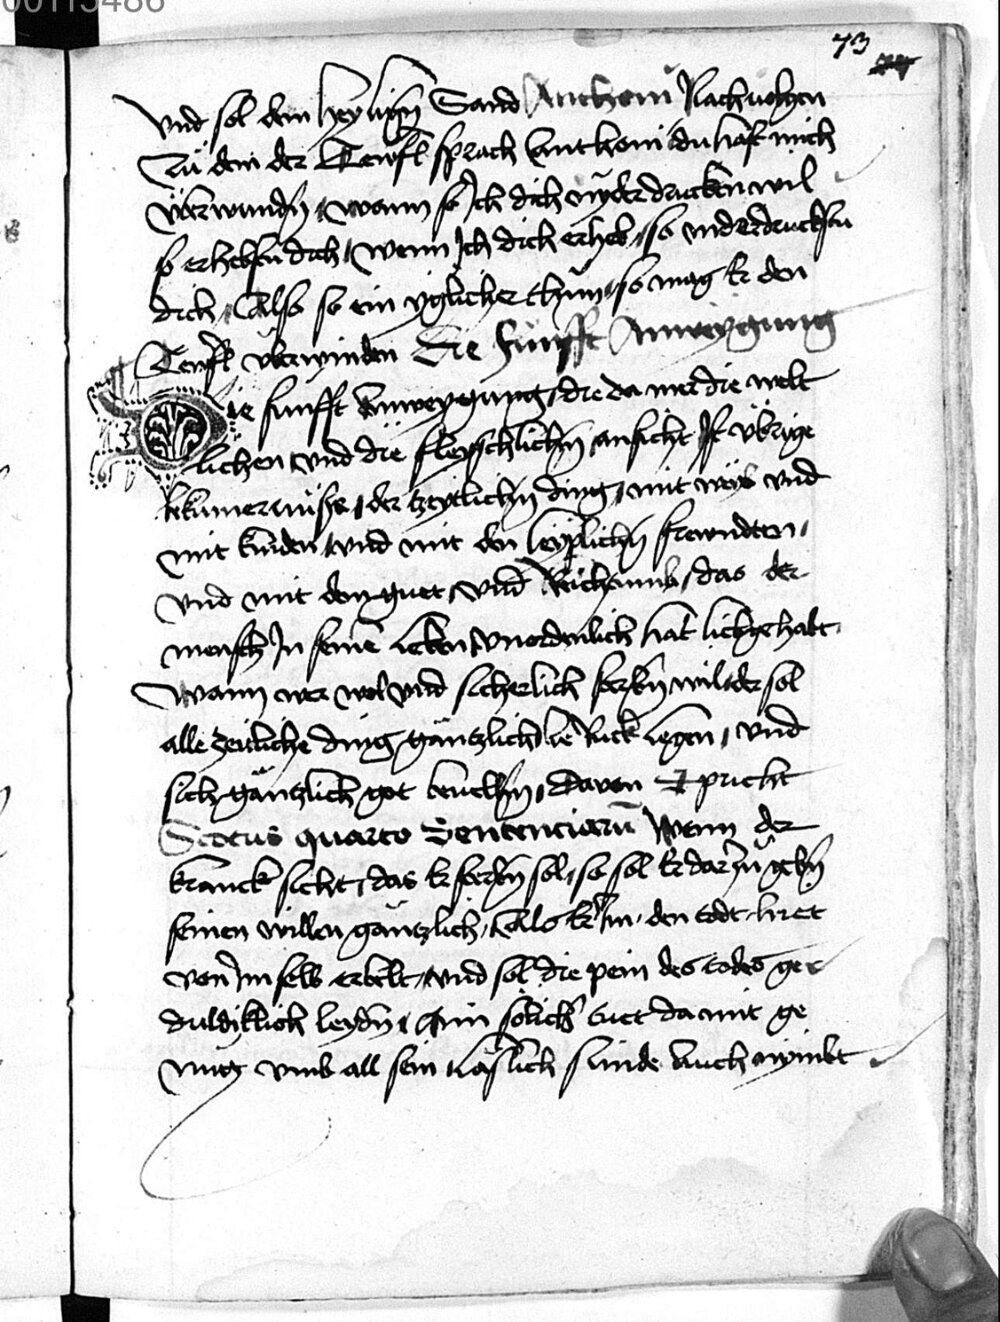 00115486
73
vnd sol dem heyligen Sand Anthoni Nachuolgen
Zu dem der Tewfl sprach Anthoni du hast mich
vberwunden wann so Ich dich nyderdrucken wil
so erhebstu dich wenn Ich dich erheb so vnderdruckstu
dich Also so ein yglicher thun so mag Er den
Tewfl vberwinden Die Funfft Anweygung
Die funfft Anweygung die da mer die welt
lichen vnd die fleyschlichen ansicht Ist vbrige
bekumernuss der zeytlichen ding mit weyb vnd
mit kinden vnd mit den leyplichen frewndten
vnd mit dem guet vnd Reichtumb das der
mensch In seinem leben vnordenlich hat lieb gehabt
Wann wer wol vnd sicherlich sterben wil der sol
alle zeitliche ding gantzlich zu Ruck legen vnd
sich gantzlich got beuelhen Davon Spricht
Scotus quarto Sentenciarum Wenn der
kranck sicht das Er sterben sol so sol Er darzu geben
seinen willen gantzlich Als Er Im den todt hiet
von Im selb erbelt vnd sol die pein des todes ge
duldiklich leyden Ain solicher tuet damit ge
nug vmb all sein laslich sunde Auch nymbt